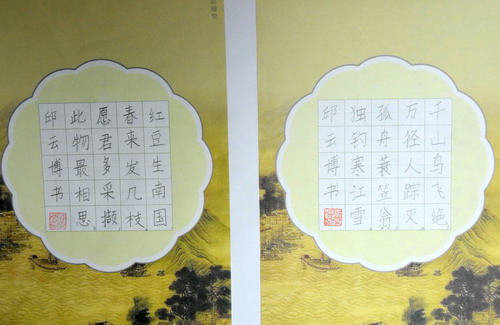 红豆生南国
春来发几枝
愿君多采撷
此物最相思
邱云博书
千山鸟飞绝
万径人踪灭
孤舟蓑笠翁
独钓寒江雪
邱云博书